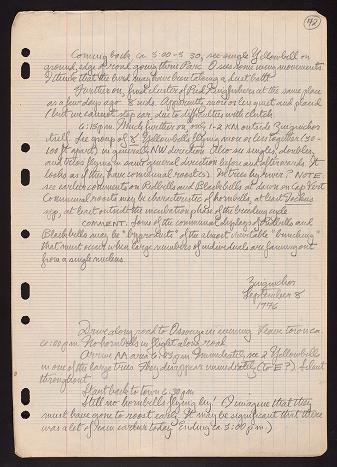 72
Coming back, ca. 5:00-5:30, see single Yellowbell on
ground, edge of road going thru Parc. Does some wing movements.
I think that the bird may have been taking a dust bath.
Further on, find cluster of Red Bishops at the same place
as a few days ago. 8 birds. Apparently more or less quiet and placid
(but we cannot stop car, due to difficulties with clutch.
6:15 pm. Much further on, only 1-2 KM outside Ziguinchor
itself. See group of 8 Yellowbells flying more or less together (50-
100 ft. apart) in generally NW direction. Also see singles, doubles,
and trios flying in same general direction before and afterwards. It
looks as if they have communal roost(s). In trees by river? NOTE:
see earlier comments on Redbills and Blackbells at dawn on Cap Vert.
Communal roosts may be characteristic of hornbills, at least Tockus
spp., at least outside the incubation phase of the breeding cycle.
COMMENT: Some of the communal displays of Redbills and
Blackbells may be "byproducts" of the almost inevitable "bunching"
that must occur when large numbers of individuals are fanning out
from a single nucleus.
Ziguinchor
September 8
1976
Drive along road to Oussouye in evening. Leave town ca.
6:00 pm. No hornbills in flight along road.
Arrive 6:03 pm. Immediately see 2 Yellowbells
in one of the large trees. They disappear immediately (to E?). Silent
throughout.
Start back to town 6:30 pm
Still no hornbills flying by! I imagine that they
must have gone to roost early. It may be significant that there
was a lot of rain earlier today (ending ca 3:00 pm.)